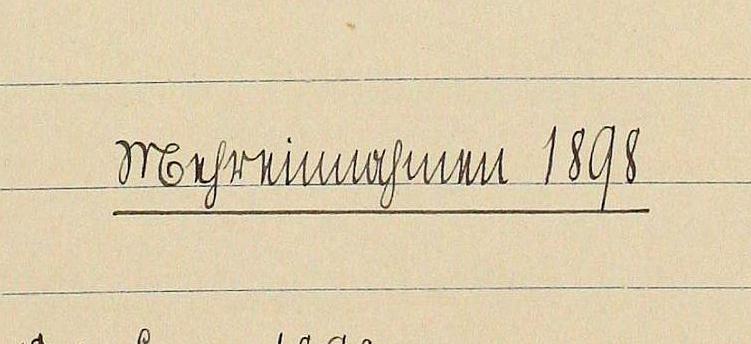 Mehreinnahmen 1898